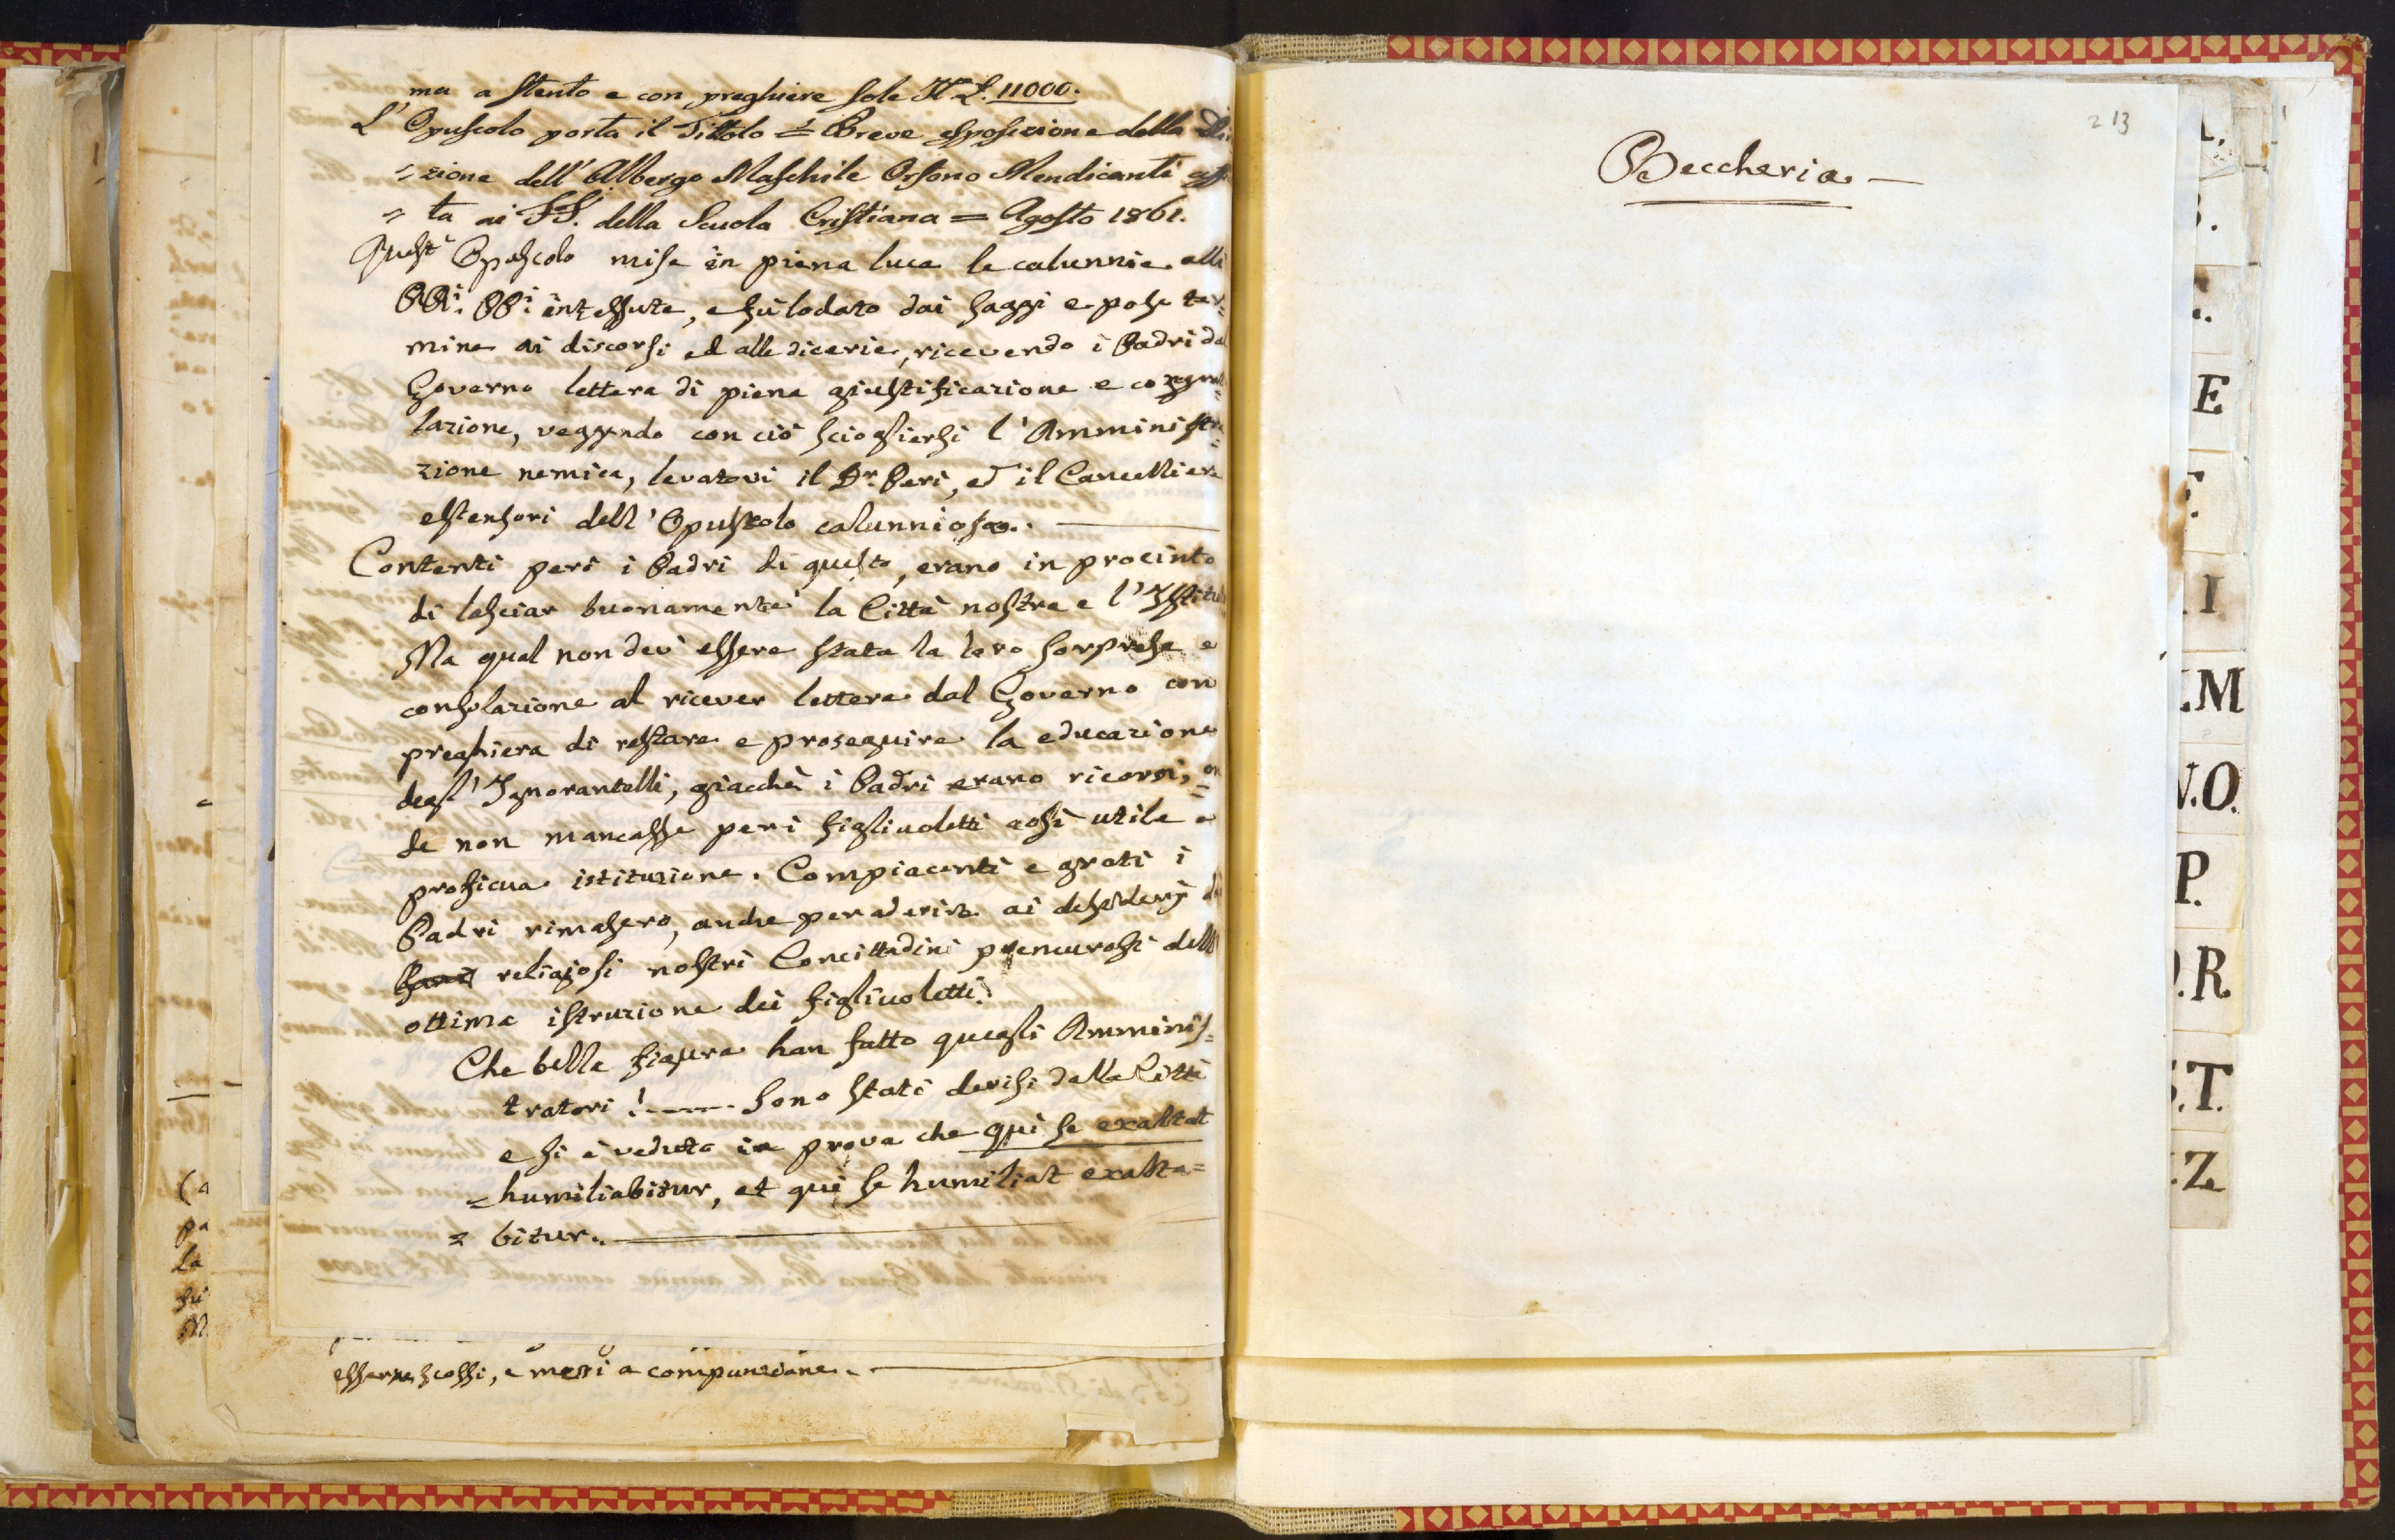 ma a stento e con preghiere sole It. £. 11000.
L' Opuscolo porta il Tittolo = Breve esposizione della
= zione dell' Albergo Maschile Orfano Mendicanti
= ta ai FF. della Scuola Cristiana = Agosto 1861.
Quest' Opuscolo mise in piena luce le calunnie alli
RRi: PPi: intessute, e fu lodato dai saggi e pose ter=
mine ai discorsi ed alle dicerie, ricevendo i Padri dal
Governo lettera di piena giustificazione e congratu=
lazione, veggendo con ciò sciogliersi l' Amministra=
zione nemica, levatovi il Dr. Peri, ed il Cancelliere
estensori dell' Opuscolo calunnioso.
Contenti però i Padri di questo, erano in procinto
di lasciar buonamente la Città nostra e l' Istituto
Ma qual non deve essere stata la loro sorpresa e
consolazione al ricever lettera dal Governo con
preghiera di restare e proseguire la educazione
degl' Ignorantelli, giacchè i Padri erano ricorsi, on=
de non mancasse peri figliuoletti così utile e
proficua istituzione. Compiacenti e grati i
Padri rimasero, anche per aderire ai desiderj dei
religiosi nostri Concittadini premurosi dell
ottima istruzione dei figliuoletti.
Che bella figura han fatto quegli Amminis=
tratori ! Sono stati derisi dalla Città
e si è veduto in prova che qui se exaltat
= humiliabitur, et qui se humiliat exalta=
= bitur.
esserne scossi, e messi a compunzione.
(a
pa
La
fu
M
Beccheria. —
213
E
I
.M
N.O.
P.
.R.
S.T.
.Z.